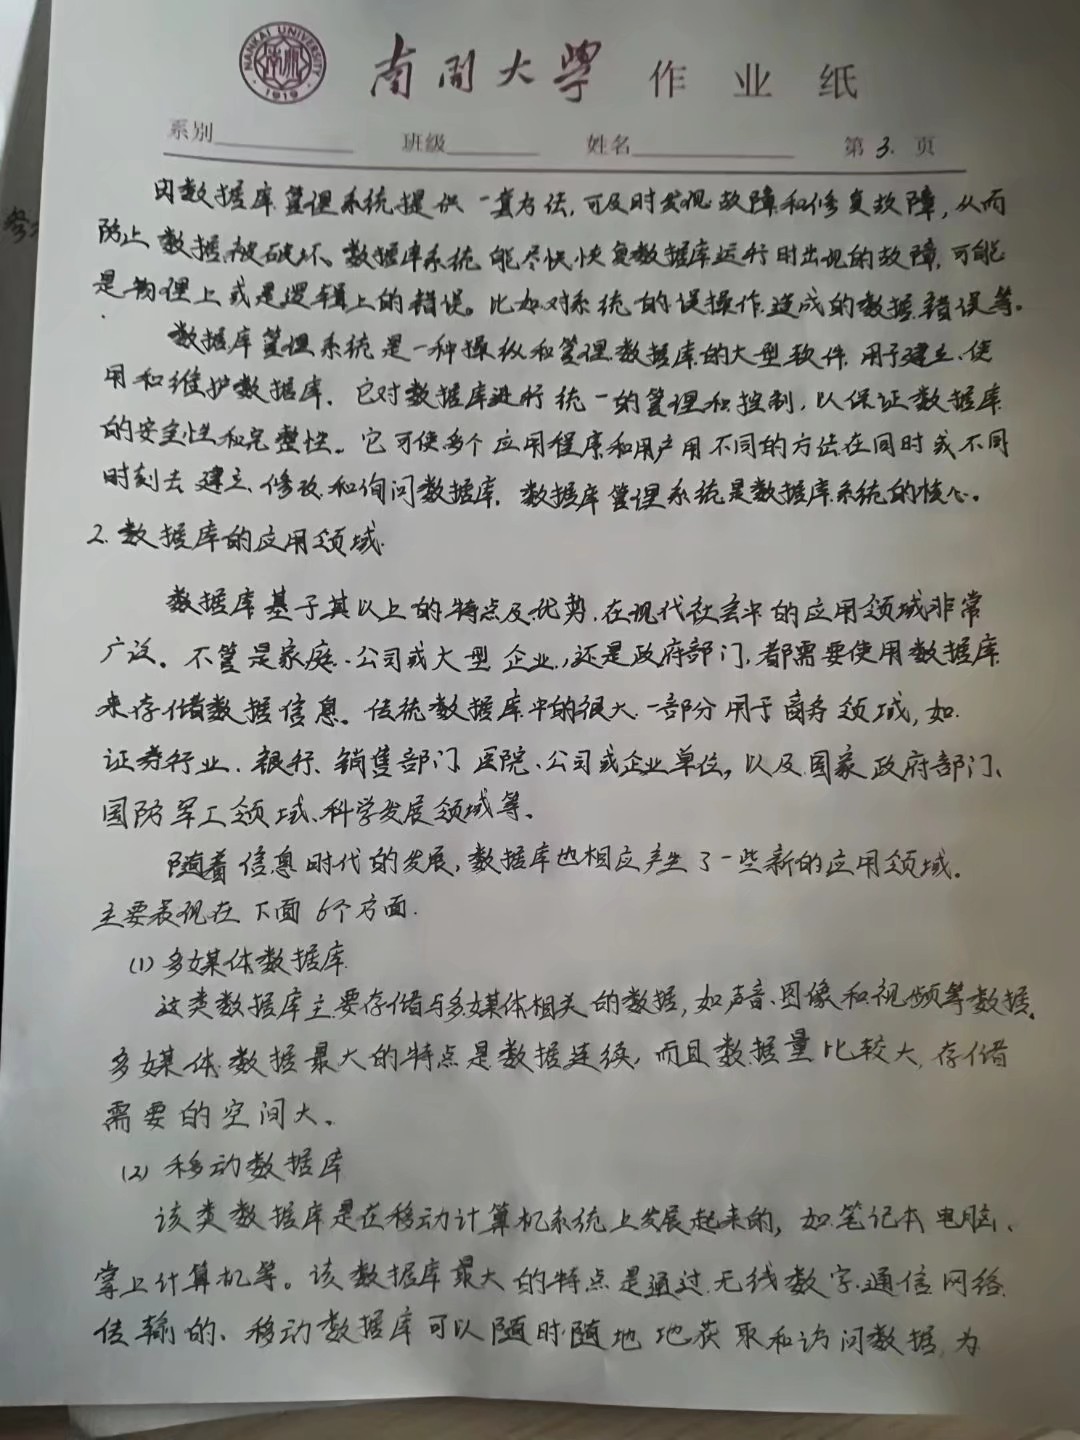 NANKAI UNIVERSITY
1919
南开大学 作业纸
系别 班级 姓名 第 3 页
由数据库管理系统提供一套方法,可及时发现故障和修复故障,从而
防止数据被破坏、数据库系统能尽快恢复数据库运行时出现的故障,可能
是物理上或是逻辑上的错误。比如对系统的误操作造成的数据错误等。
数据库管理系统是一种操纵和管理数据库的大型软件,用于建立、使
用和维护数据库,它对数据库进行统一的管理和控制,以保证数据库
的安全性和完整性。它可使多个应用程序和用户用不同的方法在同时或不同
时刻去建立、修改和询问数据库,数据库管理系统是数据库系统的核心。
2.数据库的应用领域
数据库基于其以上的特点及优势,在现代社会中的应用领域非常
广泛。不管是家庭、公司或大型企业,还是政府部门,都需要使用数据库
来存储数据信息。传统数据库中的很大一部分用于商务领域,如
证券行业、银行、销售部门、医院、公司或企业单位,以及国家政府部门、
国防军工领域、科学发展领域等。
随着信息时代的发展,数据库也相应产生了一些新的应用领域。
主要表现在下面6个方面.
(1)多媒体数据库
这类数据库主要存储与多媒体相关的数据,如声音、图像和视频等数据。
多媒体数据最大的特点是数据连续,而且数据量比较大,存储
需要的空间大。
(2)移动数据库
该类数据库是在移动计算机系统上发展起来的,如笔记本电脑、
掌上计算机等。该数据库最大的特点是通过无线数字通信网络
传输的、移动数据库可以随时随地地获取和访问数据,为